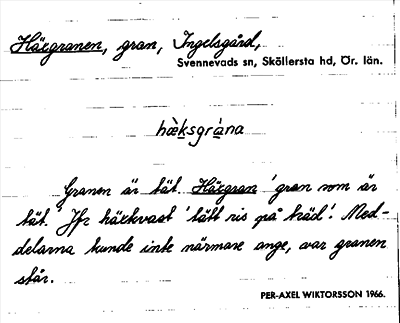 Häxgranen, gran, Ingelsgård,
Svennevads sn, Sköllersta hd, Ör. län.
hæ̀ksgrána
Granen är tät. Häxgran 'gran som är
tät.' Jfr häxkvast 'tätt ris på träd'. Med-
delarna kunde inte närmare ange, var granen
står.
PER-AXEL WIKTORSSON 1966.